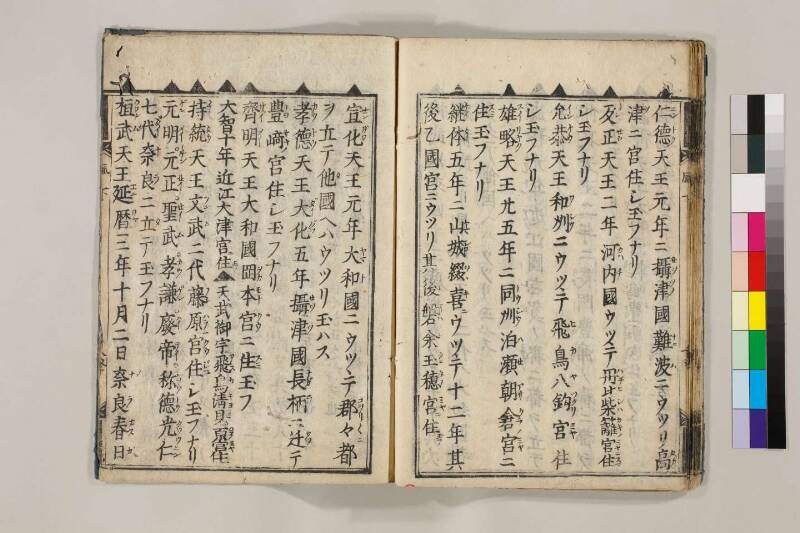 仁徳天王元年ニ攝津國難波ニウツリ高
津ニ宮住シ玉フナリ
反正天王二年河内國ウツテ丹比柴籬宮住
シ玉フナリ
允恭天王和州ニウツテ飛鳥八釣宮住
シ玉フナリ
雄略天王廿五年ニ同州泊瀬朝倉宮ニ
住玉フナリ
継体五年ニ山城綴喜ニウツテ十二年其
後乙國宮ニウツリ其後磐余玉穂宮住
宣化天王元年大和國ニウツテ郡々都
ヲ立テ他國ヘハウツリ玉ハス
孝徳天王大化五年攝津國長柄ニ迁テ
豊﨑宮住シ玉フナリ
齊明天王大和國岡本宮ニ住玉フ
天智十年近江大津宮住 天武御宇飛鳥清見原宮住
持統天王文武二代藤原宮住シ玉フナリ
元明元正聖武孝謙廢帝称徳光仁
七代奈良ニ立テ玉フナリ
桓武天王延暦三年十月二日奈良春日